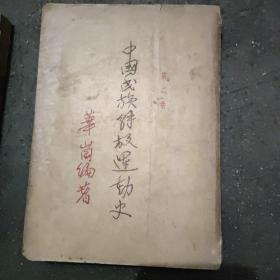 中國民族解放運動史
第二卷
華崗編著